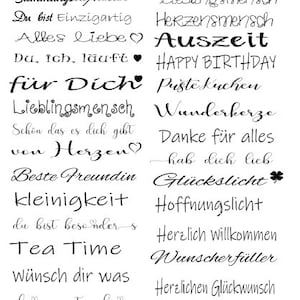 Du bist Einzigartig
Alles Liebe
Du. Ich. läuft
für Dich
Lieblingsmensch
Schön das es dich gibt
von Herzen
Beste Freundin
kleinigkeit
du bist besonders
Tea Time
Wünsch dir was
Herzensmensch
Auszeit
HAPPY BIRTHDAY
PusteKuchen
Wunderkerze
Danke für alles
hab dich lieb
Glückslicht
Hoffnungslicht
Herzlich Willkommen
Wunscherfüller
Herzlichen Glückwunsch